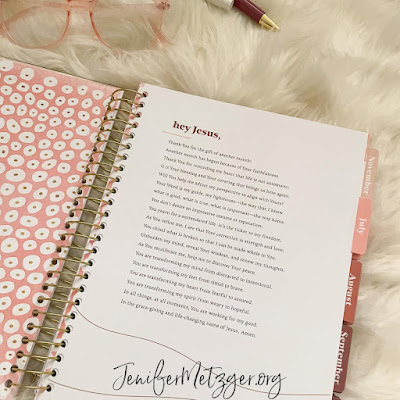 hey Jesus,
Thank You for the gift of another month!
Another month has begun because of Your faithfulness.
Thank You for reminding my heart that life is not automatic;
it is Your blessing and Your covering that brings us here again.
Will You help me adjust my perspective to align with Yours?
Your Word is my guide, my lighthouse—the way that I know
what is good, what is true, what is important—the way home.
You don't desire an impressive résumé or reputation;
You yearn for a surrendered life. It's the ticket to my freedom.
As You refine me, I see that Your correction is strength and love.
You chisel what is broken so that I can be made whole in You.
Unburden my mind, reveal Your wisdom, and renew my thoughts.
As You recalibrate me, help me to discover Your peace.
You are transforming my mind from distracted to intentional.
You are transforming my feet from timid to brave.
You are transforming my heart from fearful to assured.
You are transforming my spirit from weary to hopeful.
In all things, at all moments, You are working for my good.
In the grace-giving and life-changing name of Jesus, Amen.
November
July
August
September
JeniferMetzger.org